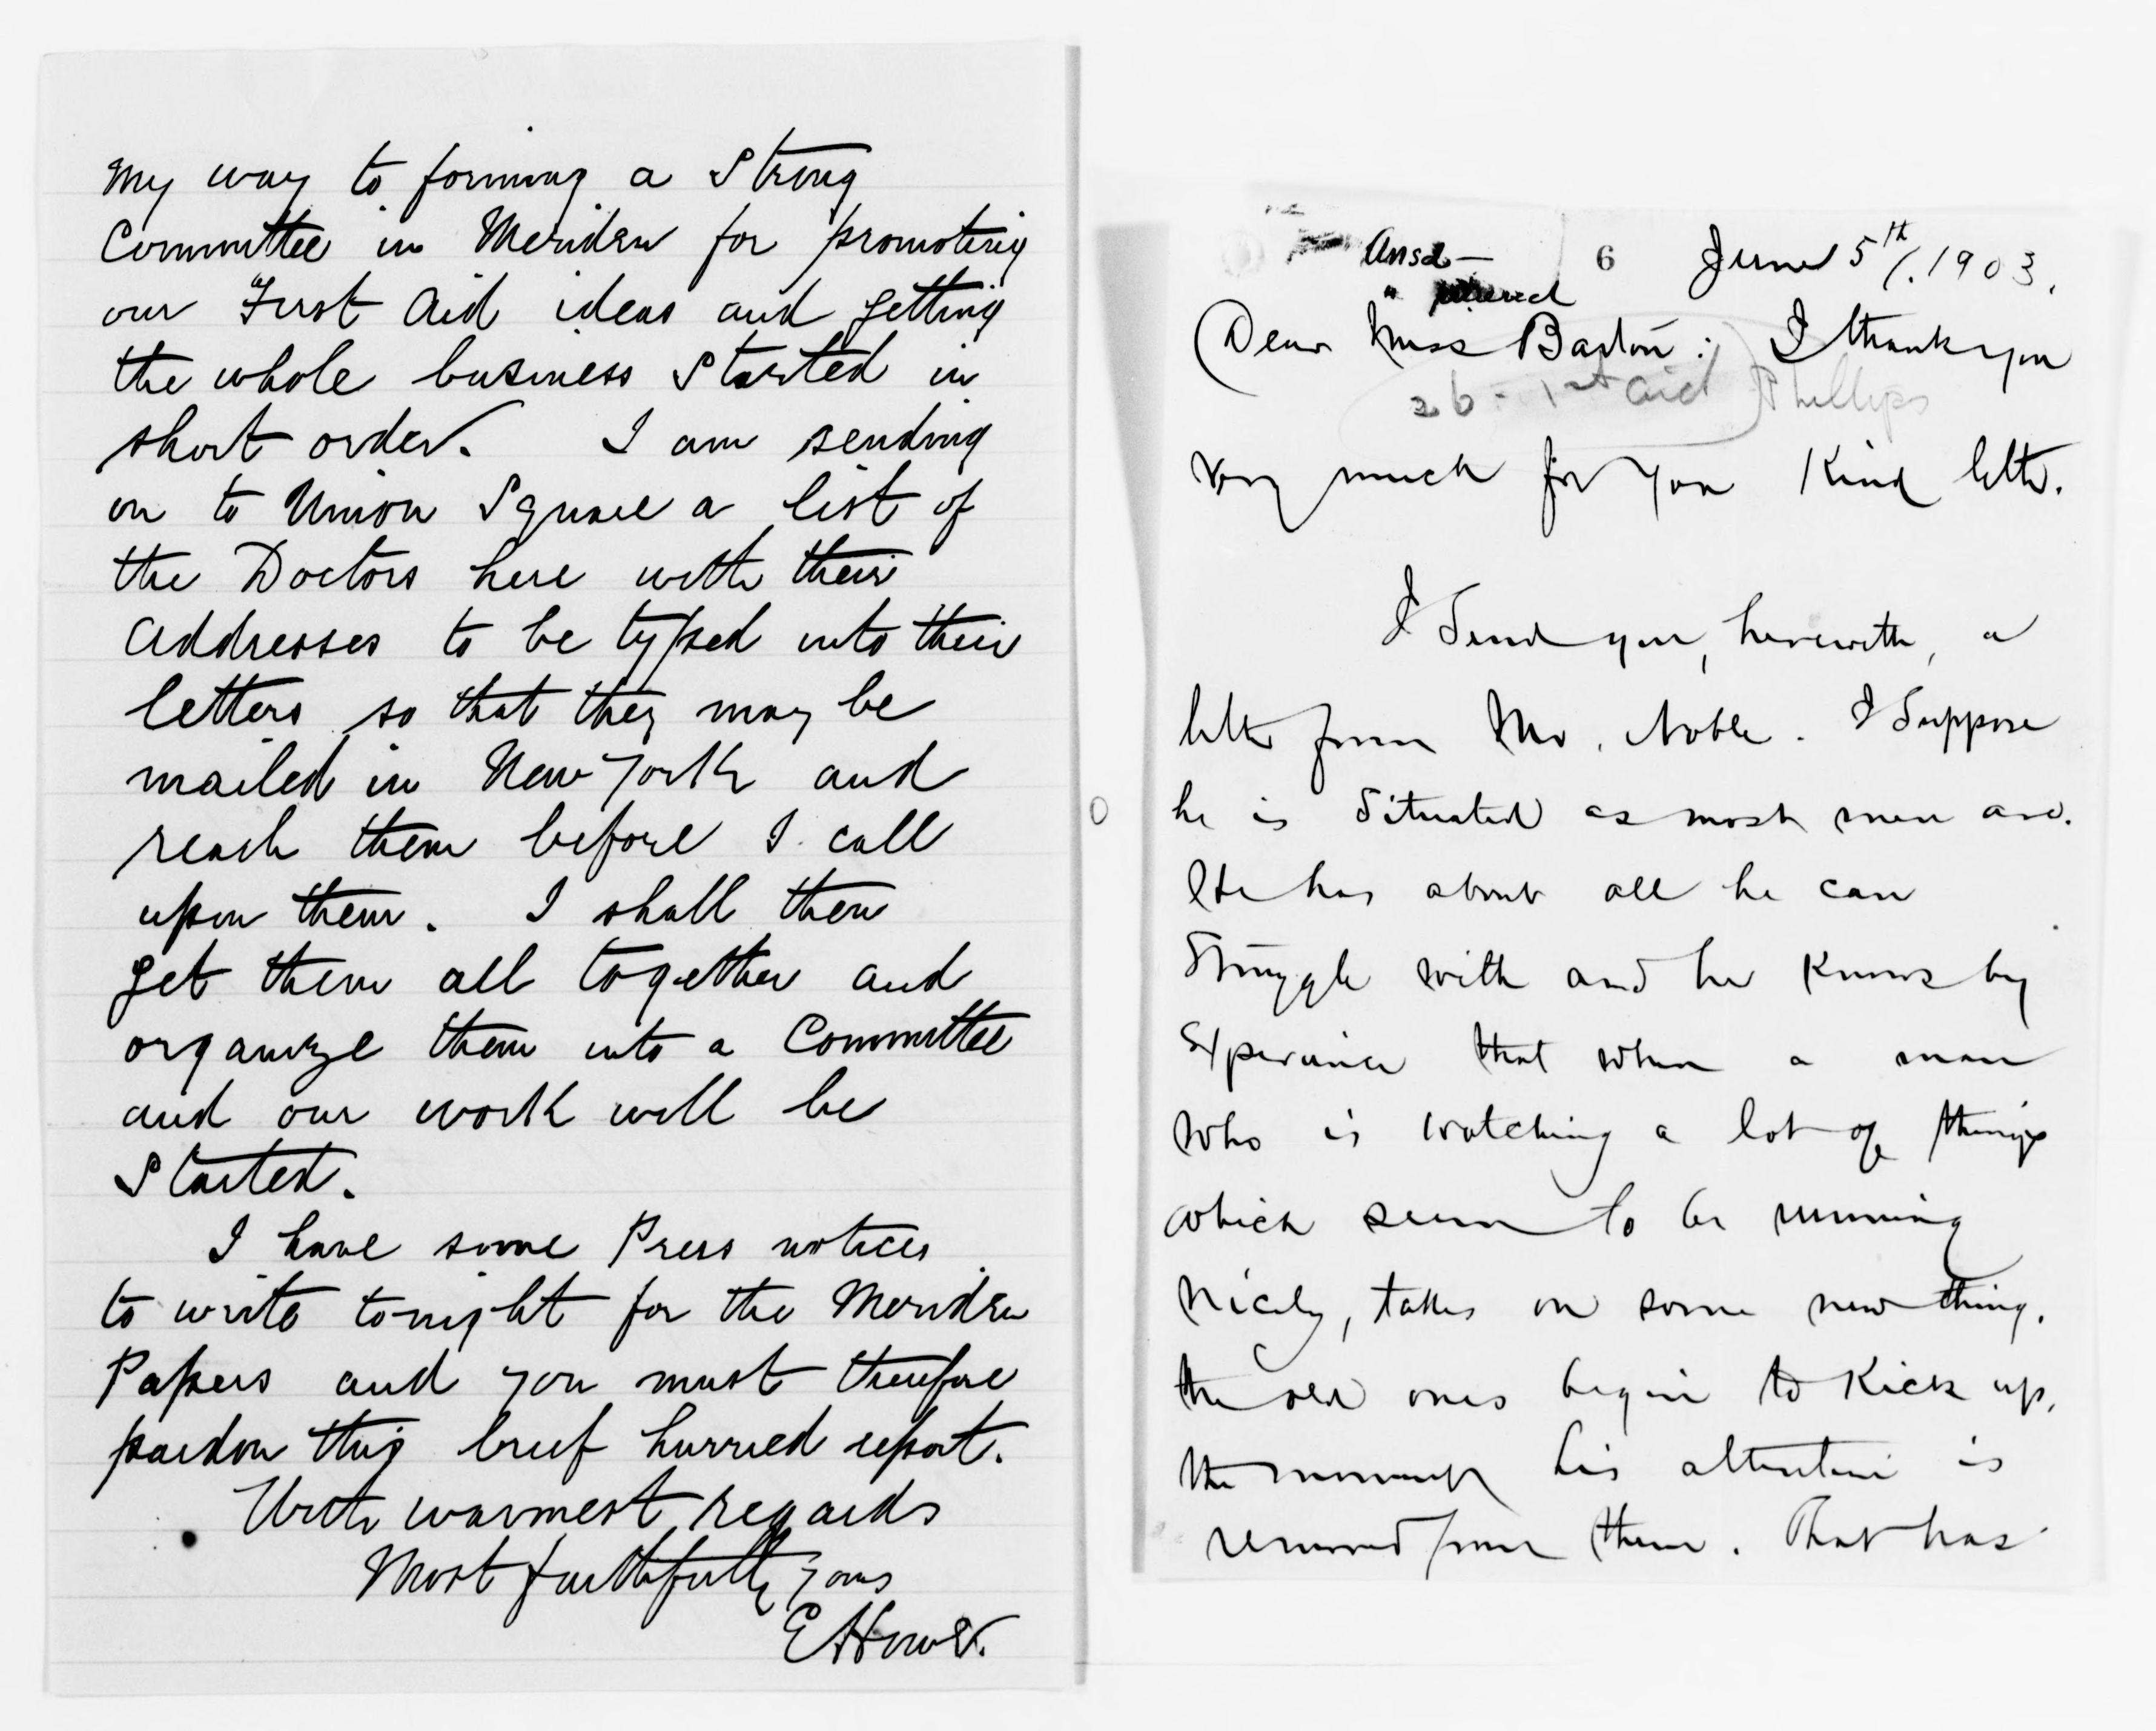 my way to forming a Strong
Committee in Meriden for promoting
our First Aid ideas and getting
the whole business Started in
short order. I am sending
on to Union Square a list of
the Doctors here with their
addresses to be typed into their
letters so that they may be
mailed in New York and
reach them before I call
upon them. I shall then
get them all together and
organize them into a Committee
and our work will be
Started.
I have some Press notices
to write tonight for the Meriden
Papers and you must therefore
pardon this brief hurried report.
With warmest regards
Most faithfully yours
E Howe.
Ansd—
6 June 5th/.1903.
"
Dear Miss Barton: I thank you
26 - 1st aid Phillips
very much for you Kind letter.
I Send you, herewith, a
letter from Mr. Noble. I Suppose
he is Situated as most men are.
He has about all he can
Struggle with and he knows by
Experience that when a man
who is watching a lot of things
which seem to be running
nicely, takes on some new thing,
the old ones begin to Kick up,
the moment his attention is
removed from them. That has